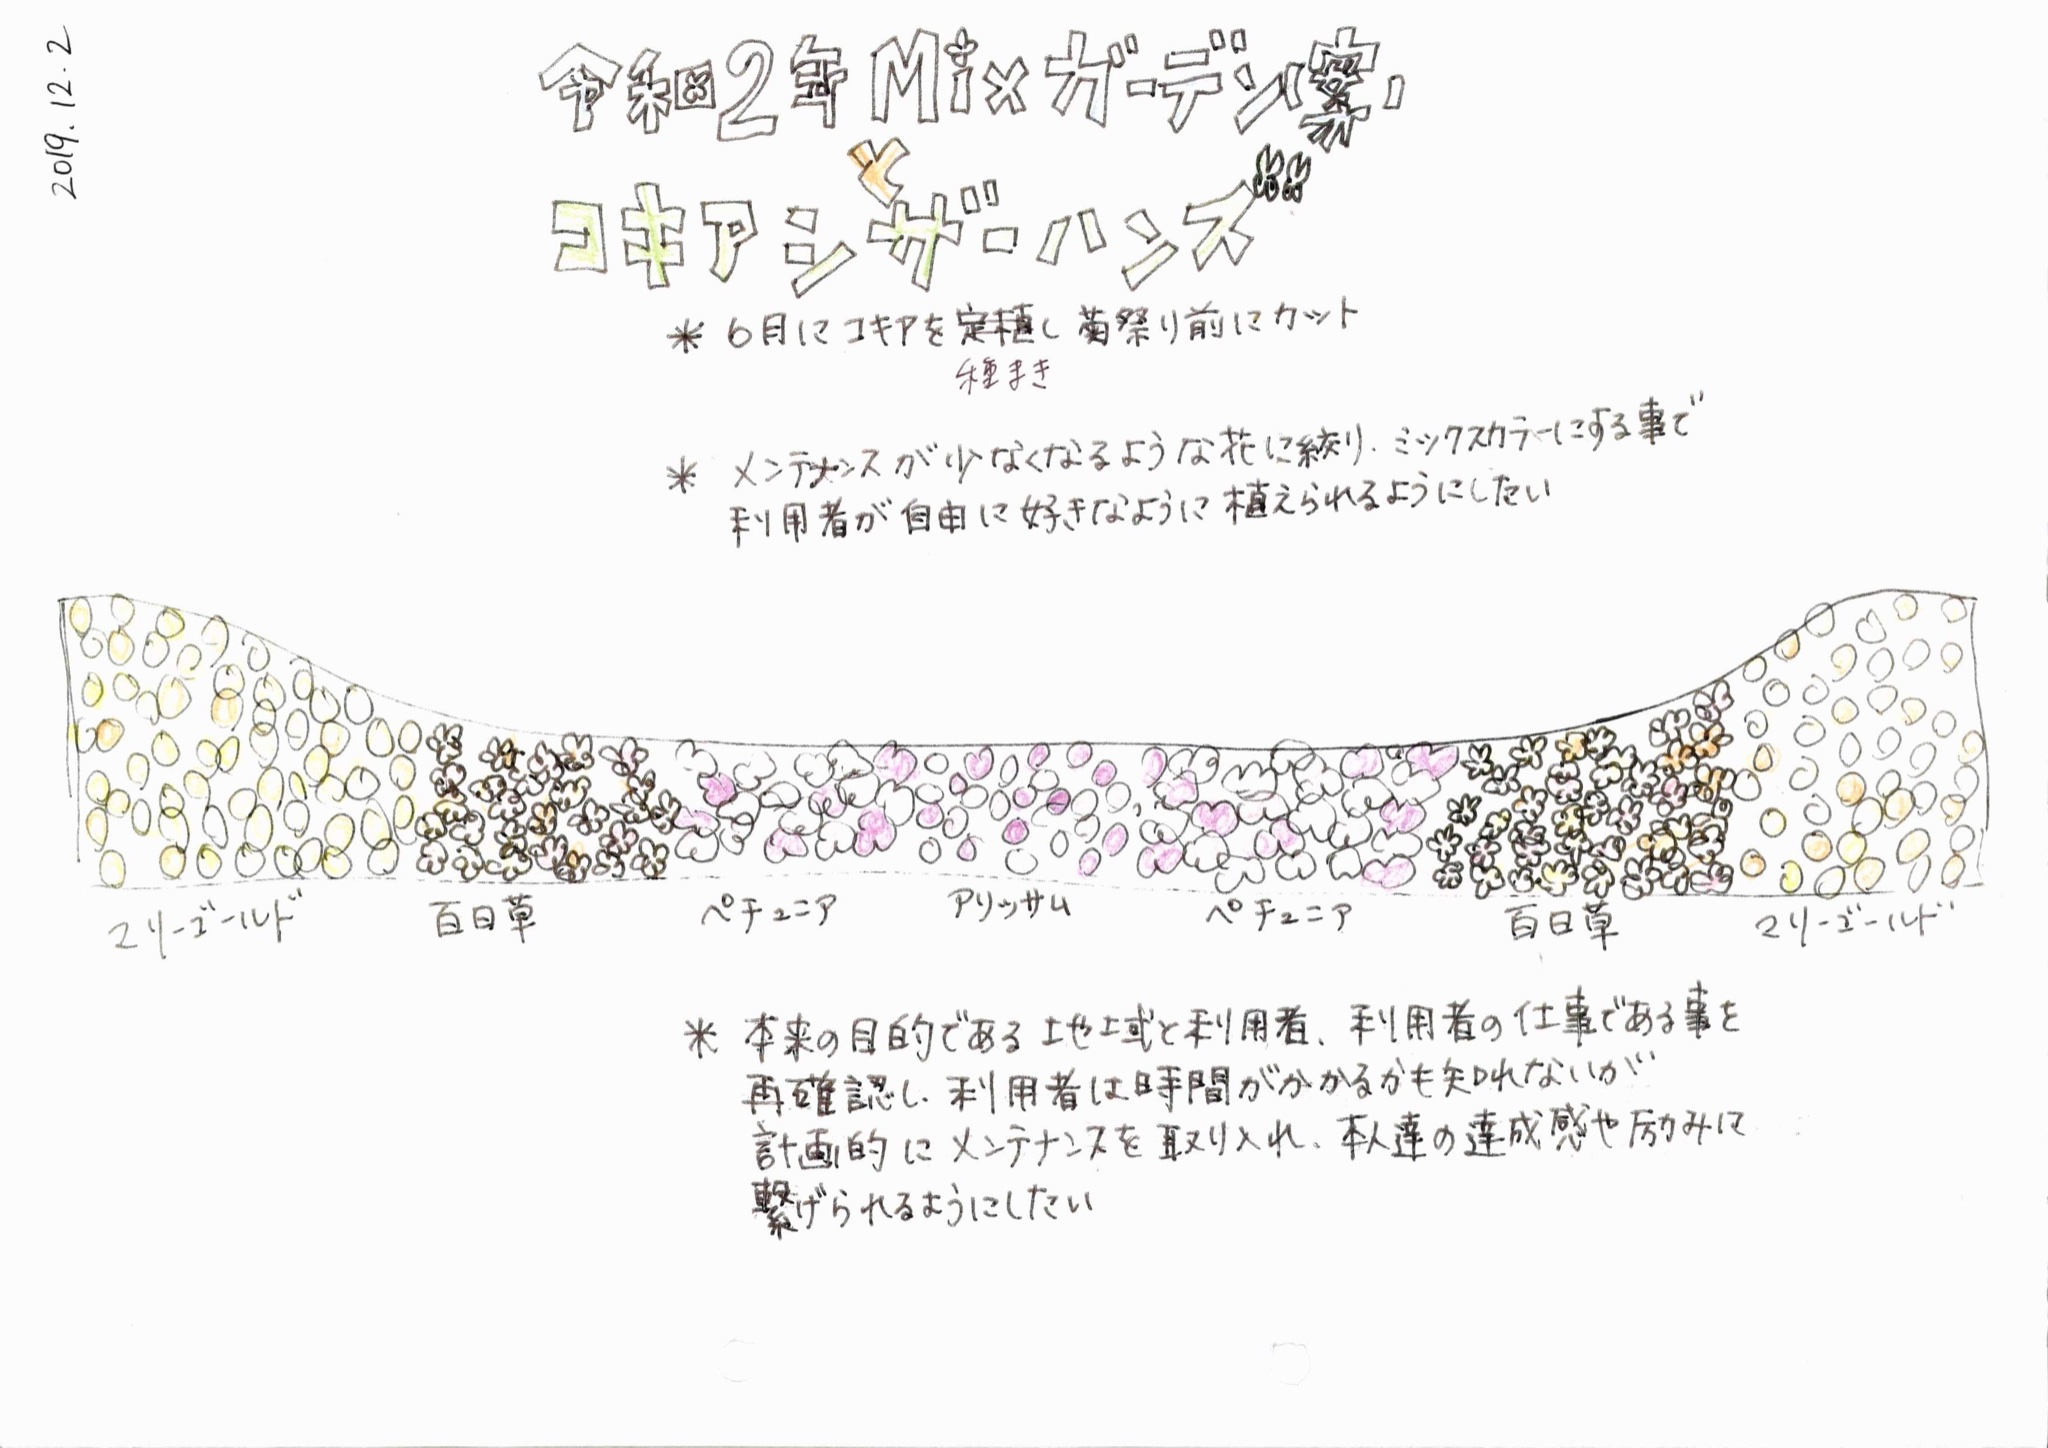 2019.12.2
令和2年Mixガーデン案
と
コキアシザーハンズ
* 6月にコキアを定植し菊祭り前にカット
種まき
* メンテナンスが少なくなるような花に絞り、ミックスカラーにする事で
利用者が自由に好きなように植えられるようにしたい
マリーゴールド 百日草 ペチュニア アリッサム ペチュニア 百日草 マリーゴールド
* 本来の目的である地域と利用者、利用者の仕事である事を
再確認し、利用者は時間がかかるかも知れないが
計画的にメンテナンスを取り入れ、本人達の達成感や励みに
繋げられるようにしたい